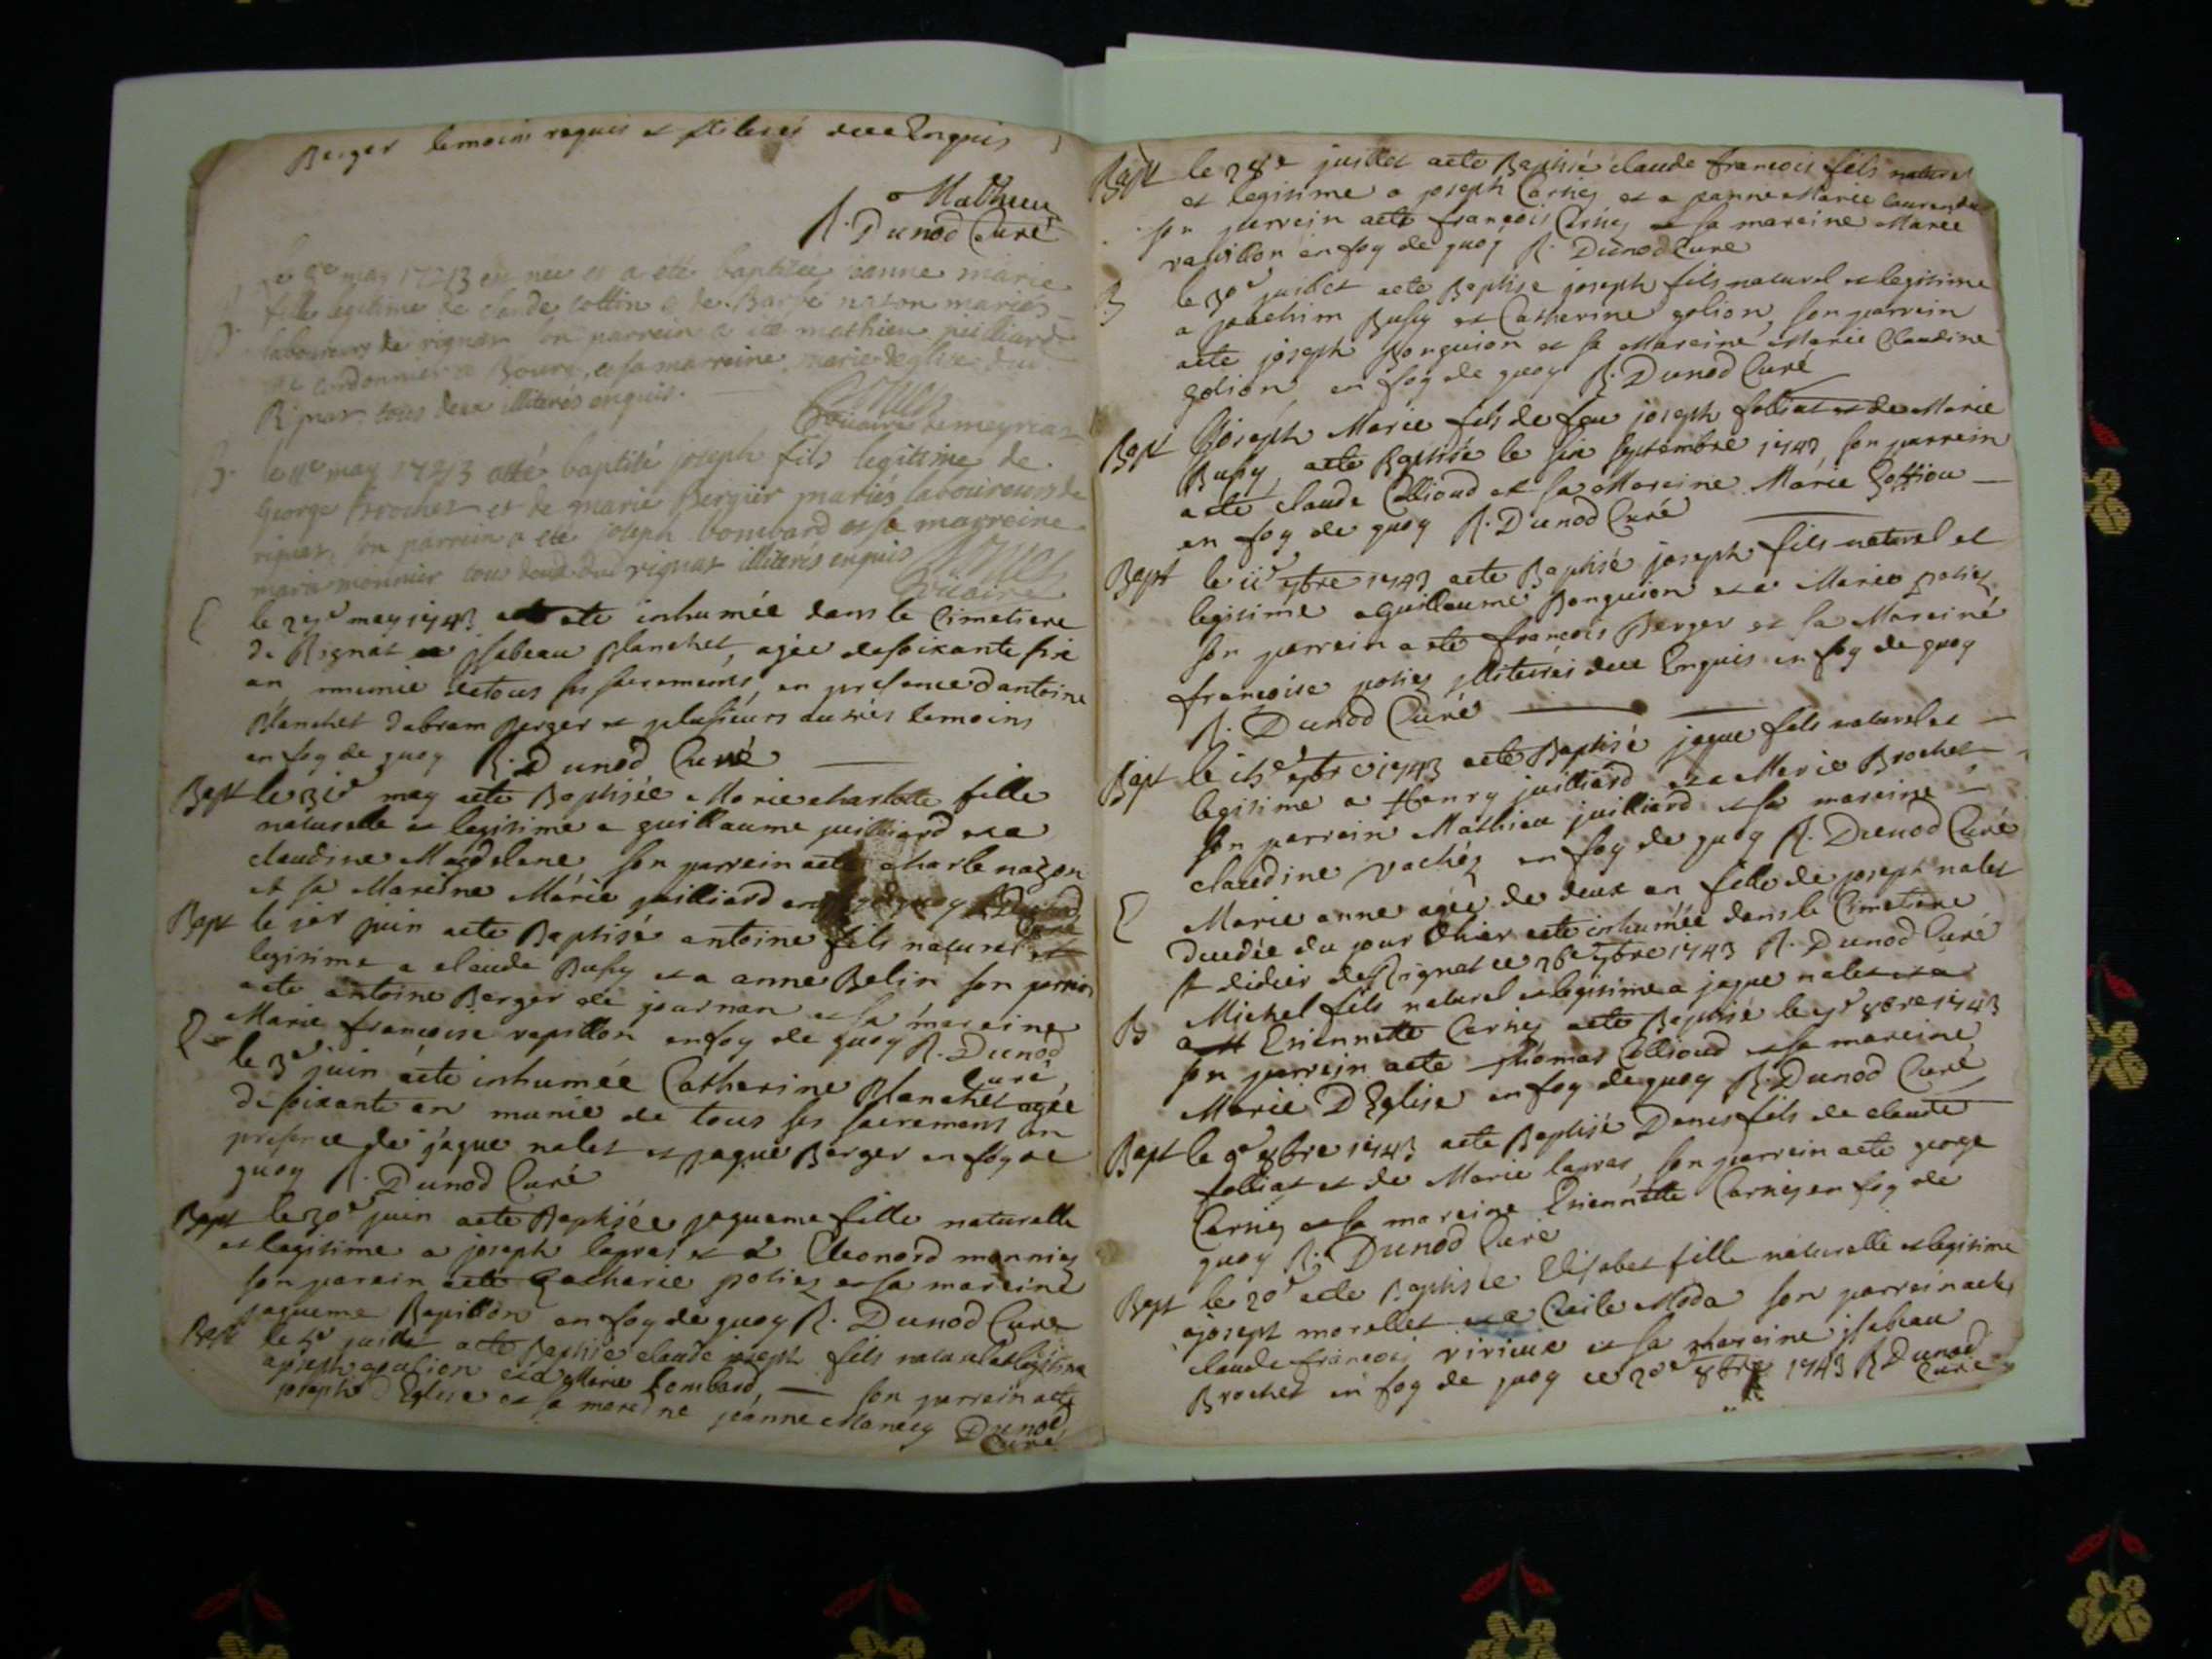 Berger temoins requis et illiterés deue Enquis
Mathieu
R. Dunod Curé
le may 1743 est née et a été baptisée janne marie
B. fille legitime de claude cottin et de Barbe nazon mariés
laboureurs de rignat son parrein a été mathieu juilliard
me cordonnier a Bourg, et sa marreine marie deglise du
Rignat tous deux illiterés enquis.
Vicaire de meyriat
B. le may 1743 a été baptisé joseph fils legitime de
George Brochet et de marie Bergier mariés laboureurs de
rignat, son parrein a été joseph bombard et sa marreine
marie monnier tous deux du rignat illiterés enquis
Vicaire
le 27e may 1743 a ete inhumée dans le Cimetiere
de Rignat jsabeau Blanchet, agée de soixante six
an munie de tous ses sacrements, en presence dantoine
Blanchet dabram Berger et plusieurs autres temoins
en foy de quoy R. Dunod Curé
Bapt le 31e may aete Baptisée Marie charlotte fille
naturelle et legitime a guillaume juilliard et a
claudine Magdelene son parrein aete charle nazon
et sa Mareine Marie juilliard en foy de quoy R. Dunod Curé
Bapt le 1er juin aete Baptisé antoine fils naturel et
legitime a claude Bussy et a anne Belin son parrein
aete antoine Berger de journan et sa mareine
Marie francoise rapillon en foy de quoy R. Dunod Curé
le 3e juin aete inhumée Catherine Blanchet agée
de soixante an munie de tous ses sacremens en
presence de jaque nalet et jaque Berger en foy de
quoy R. Dunod Curé
Bapt le 30e juin aete Baptisée jaqueme fille naturelle
et legitime a joseph lapras et a Eleonord monnier
son parein aete Zacharie poties et sa mareine
jaqueme Rapillon en foy de quoy R. Dunod Curé
Bapt le juillet aete Baptisé claude joseph fils naturel et legitime
a joseph et a Marie bombard, son parrein aete
joseph D Eglise et sa mareine jeanne Dunod Curé
Bapt le 28e juillet aete Baptisé claude francois fils naturel
et legitime a joseph Carrier et a janne Marie
son parrein aete francois Carrier et sa mareine Marie
rapillon en foy de quoy R. Dunod Curé
B le 30e juillet aete Baptise joseph fils naturel et legitime
a joachim Bussy et Catherine golion, son parrein
aete joseph Ponguion et sa Mareine Marie Claudine
golion en foy de quoy R. Dunod Curé
Bapt Joseph Marie fils de feu joseph folliat et de Marie
Bussy aete Baptisé le six septembre 1743, son parrein
aete claude Collioud et sa Mareine Marie
en foy de quoy R. Dunod Curé
Bapt le 11e 7bre 1743 aete Baptisé joseph fils naturel et
legitime a Guillaume Ponguion et a Marie poties
son parrein a ete francois Berger et sa Mareine
francoise poties jlliterés deue Enquis en foy de quoy
R. Dunod Curé
Bapt le 15e 7bre 1743 aete Baptisé jaque fils naturel et
legitime a Henry juilliard et a Marie Brochet
son parrein Mathieu juilliard et sa mareine
claudine en foy de quoy R. Dunod Curé
Marie anne agée de deux an fille de joseph nalet
decedée du jour dhier aete inhumée dans le Cimetiere
st didier de Rignat ce 26e 7bre 1743 R. Dunod Curé
B Michel fils naturel et legitime a jaque nalet et a
Etiennette Carrier aete Baptisé le 7e 8bre 1743
son parrein aete thomas Collioud et sa mareine
Marie D Eglise en foy de quoy R. Dunod Curé
Bapt le 9e 8bre 1743 aete Baptisé Denis fils de claude
folliat et de Marie lapras, son parrein aete george
Carrier et sa mareine Etiennette Carrier en foy de
quoy R. Dunod Curé
Bapt le 20e aete Baptisée Elisabet fille naturelle et legitime
a joseph morellet et a Cecile Moda son parrein aete
claude francois rivieux et sa mareine jsabeau
Brochet en foy de quoy ce 20e 8bre 1743 R. Dunod Curé